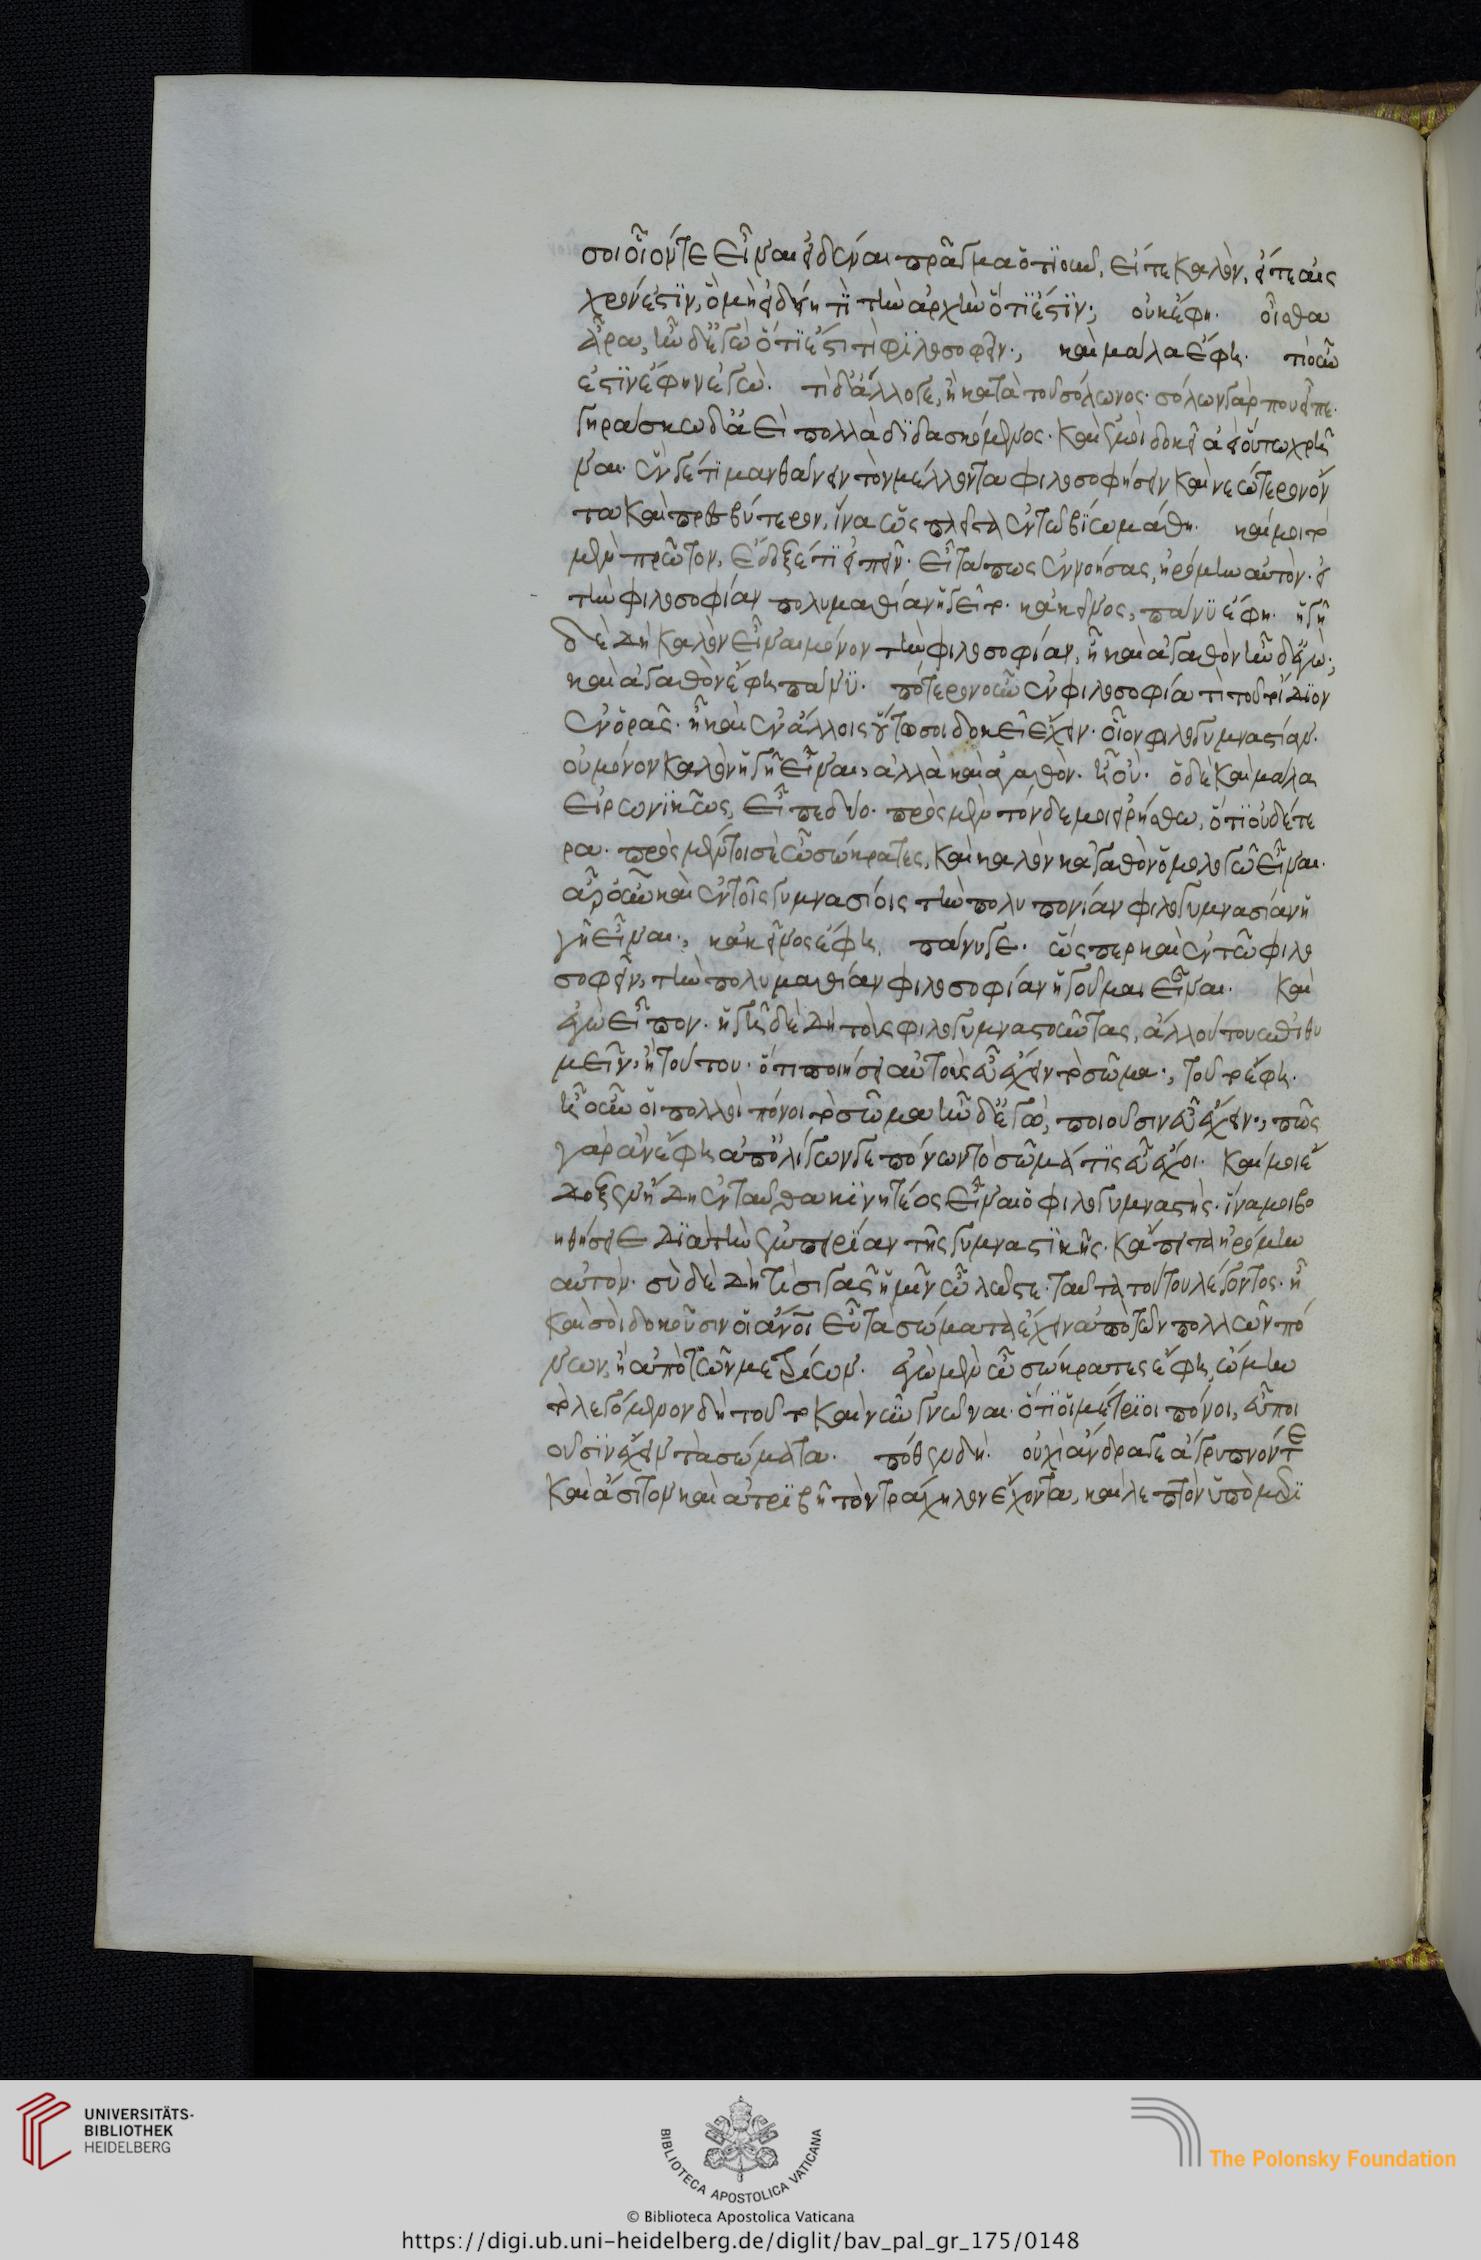 σοι οἷον τε εἶναι εἰδέναι πρᾶγμα ὁτιοῦν, εἴτε καλὸν, εἴτε αἰσ
χρόν ἐστιν, ὃ μὴ εἰδείη τὶ τὴν ἀρχὴν ὅτι ἐστιν; οὐκ ἔφη. οἶσθα
ἆρα, ἦν δ' ἐγὼ ὅτι ἐστι τὸ φιλοσοφεῖν; καὶ μάλα ἔφη. τί οὖν
ἐστὶν ἔφην ἐγὼ. τί δ' ἄλλο γε, ἢ κατὰ τοῦ σόλωνος. σόλων γάρ που εἶπε.
γηράσκω δ' ἀεὶ πολλὰ διδασκόμενος. καὶ ἐμοὶ δοκεῖ ἀεὶ οὕτω χρῆ
ναι. ἕν γέ τι μανθάνειν τὸν μέλλοντα φιλοσοφήσειν καὶ νεώτερον ὄν
τα καὶ πρεσβύτερον, ἵνα ὡς πλεῖστα ἐν τῷ βίῳ μάθῃ. καί μοι τὸ
μὲν πρῶτον, ἔδοξέ τι εἰπεῖν. εἶτά πως ἐννοήσας, ἠρόμην αὐτὸν. εἰ
τὴν φιλοσοφίαν πολυμαθίαν ἡγεῖτο. κἀκεῖνος, πάνυ ἔφη. ἡγῆ
δὲ δὴ καλὸν εἶναι μόνον τὴν φιλοσοφίαν, ἢ καὶ ἀγαθὸν ἦν δ' ἐγώ;
καὶ ἀγαθὸν ἔφη πάνυ. πότερον οὖν ἐν φιλοσοφία τὶ τοῦτο ἴδιον
ἐνορᾶς. ἢ καὶ ἐν ἄλλοις οὕτω σοι δοκεῖ ἔχειν. οἷον φιλογυμναστίαν.
οὐ μόνον καλὸν ἡγῆ εἶναι, ἀλλὰ καὶ ἀγαθὸν. ἢ οὐ. ὁ δὲ καὶ μάλα
εἰρωνικῶς, εἶπε δύο. πρὸς μὲν τόνδε μοι εἰρήσθω, ὅτι οὐδέτε
ρα. πρὸς μέντοι σὲ ὦ σώκρατες, καὶ καλὸν κἀγαθὸν ὁμολογῶ εἶναι.
ἆρ' οὖν καὶ ἐν τοῖς γυμνασίοις τὴν πολυπονίαν φιλογυμνασίαν ἡ
γῆ εἶναι; κἀκεῖνος ἔφη. πάνυ γε. ὥσπερ καὶ ἐν τῶ φιλο
σοφεῖν, τὴν πολυμαθίαν φιλοσοφίαν ἡγοῦμαι εἶναι. καὶ
ἐγὼ εἶπον. ἡγῆ δὲ δὴ τοὺς φιλογυμναστοῦντας, ἄλλου του ἐπιθυ
μεῖν, ἢ τούτου. ὅτι ποιήσει αὐτοὺς εὖ ἔχειν τὸ σῶμα; τούτου ἔφη.
ἦ οὖν οἱ πολλοὶ πόνοι τὸ σῶμα ἦν δ' ἐγὼ, ποιοῦσιν εὖ ἔχειν; πῶς
γὰρ ἂν ἔφη ἀπὸ ὀλίγων γε πόνων τὸ σῶμά τις εὖ ἔχοι. καί μοι ἔ
δοξεν ἤδη ἐνταῦθα κινητέος εἶναι ὁ φιλογυμναστὴς. ἵνα μοι βο
ηθήσειε διὰ τὴν ἐμπειρίαν τῆς γυμναστικῆς. κἄπειτα ἠρόμην
αὐτὸν. σὺ δὲ δὴ τί σιγᾶς ἡμῖν ὦ λῶστε. ταῦτα τούτου λέγοντος. ἢ
καὶ σοὶ δοκοῦσιν οἱ ἄνοι εὖ τὰ σώματα ἔχειν ἀπὸ τῶν πολλῶν πό
νων, ἢ ἀπὸ τῶν μετρίων. ἐγὼ μὲν ὦ σώκρατες ἔφη, ὤμην
τὸ λεγόμενον δὴ τοῦτο καὶ νῦν γνῶναι. ὅτι οἱ μέτριοι πόνοι, εὖ ποι
οῦσιν ἔχειν τὰ σώματα. πόθεν δή. οὐχὶ ἄνδρά γε ἀγρυπνόντε
καὶ ἄσιτον καὶ ἀτριβῆ τὸν τράχηλον ἔχοντα, καὶ λεπτὸν ὑπὸ μερι
UNIVERSITÄTS-
BIBLIOTHEK
HEIDELBERG
BIBLIOTECA APOSTOLICA VATICANA
The Polonsky Foundation
© Biblioteca Apostolica Vaticana
https://digi.ub.uni-heidelberg.de/diglit/bav_pal_gr_175/0148